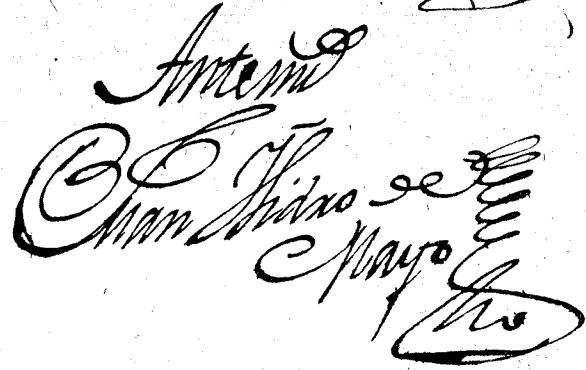 Antemi
Juan Ysidro de
Mayo